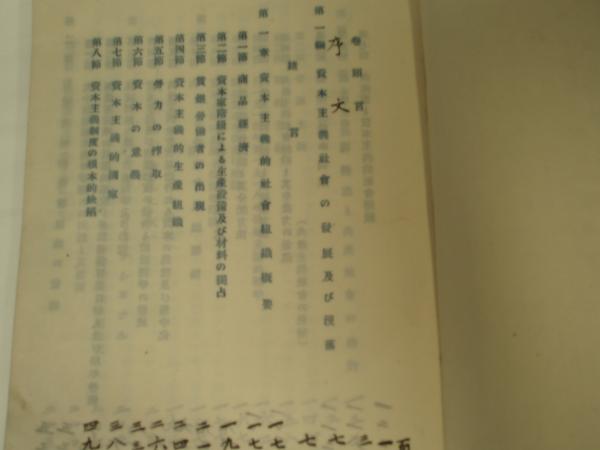 卷頭言
序文
第一編 資本主義社會の發展及び沒落
緖言
第一章 資本主義的社會組織概要
第一節 商品經濟
第二節 資本家階級による生產設備及び材料の獨占
第三節 賃銀勞働者の出現
第四節 資本主義的生產組織
第五節 勞力の搾取
第六節 資本の意義
第七節 資本主義的國家
第八節 資本主義制度の根本的缺陷
頁
一
三
七
七
一七
一七
一九
二一
二四
二六
三八
四九